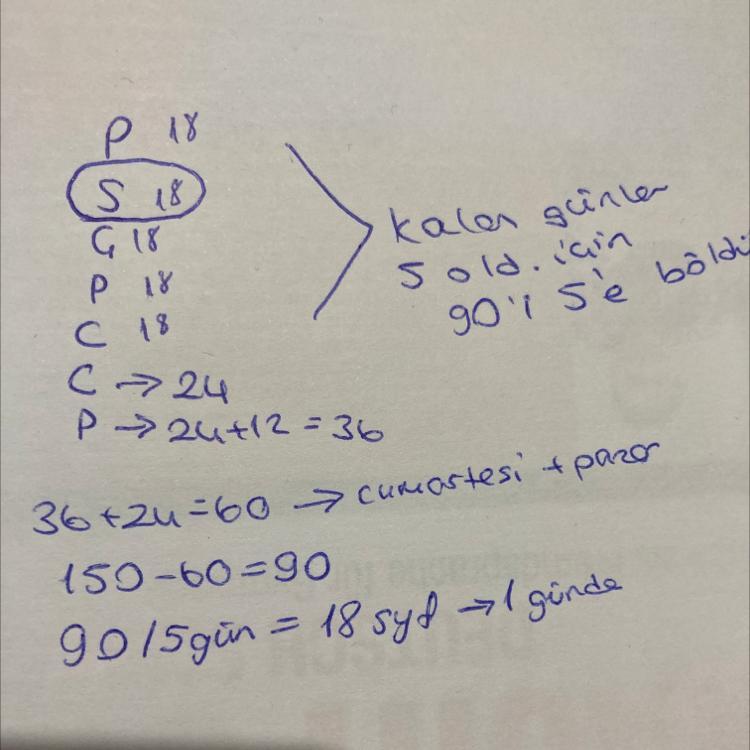 P 18
S 18
Ç 18
P 18
C 18
kalan günler
5 old. için
90'ı 5'e böldü
C → 24
P → 24+12 = 36
36+24=60 → cumartesi + pazar
150-60=90
90/5gün = 18 syf → 1 günde